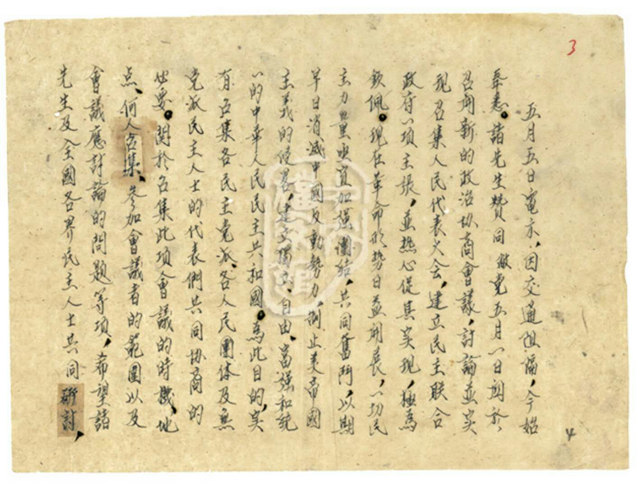 3
五月五日電示,因交通阻隔,今始
奉悉。諸先生贊同敝黨五月一日關於
召開新的政治協商會議,討論並實
現召集人民代表大會,建立民主聯合
政府一項主張,並熱心促其實現,極為
欽佩。現在革命形勢日益開展,一切民
主力量亟宜加強團結,共同奮鬥,以期
早日消滅中國反動勢力,制止美帝國
主義的侵略,建立獨立、自由、富强和統
一的中華人民民主共和國。為此目的,實
有召集各民主黨派、各人民團体及無
黨派民主人士的代表們共同協商的
必要。關於召集此項會議的時機、地
点、何人召集、參加會議者的範圍以及
會議應討論的問題等項,希望諸
先生及全國各界民主人士共同研討,
4